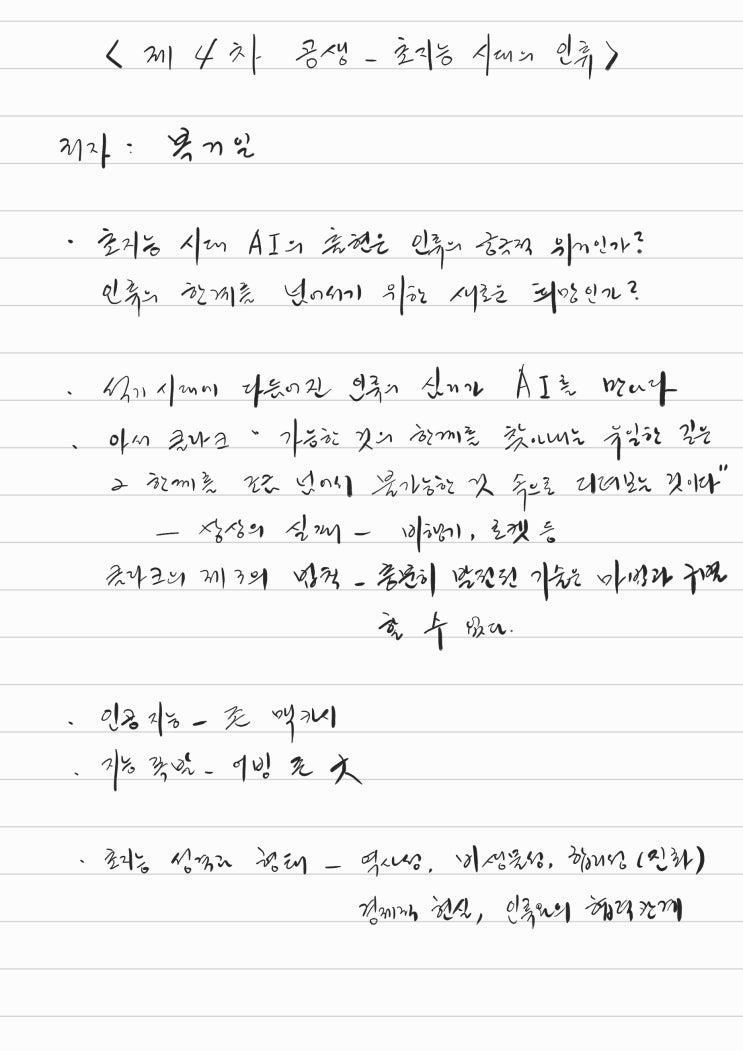 < 제 4차 공생 - 초지능 시대의 인류 >
저자 : 복거일
· 초지능 시대 AI의 출현은 인류의 궁극적 위기인가?
인류의 한계를 넘어서기 위한 새로운 희망인가?
· 석기 시대에 다듬어진 인류의 심리가 AI를 만나다
· 아서 클라크 “ 가능한 것의 한계를 찾아내는 유일한 길은
그 한계를 조금 넘어서 불가능한 것 속으로 디뎌보는 것이다”
— 상상의 실재 — 비행기, 로켓 등
클라크의 제 3의 법칙 - 충분히 발전된 기술은 마법과 구별
할 수 없다.
· 인공지능 - 존 맥카시
· 지능 폭발 - 어빙 존 굿
· 초지능 성격과 형태 - 역사성, 비생물성, 합리성 (진화)
경제적 현실, 인류와의 협력관계